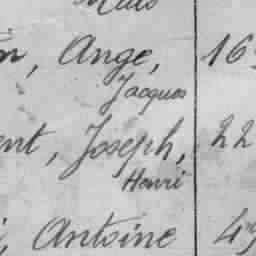 , Ange, 16
Jacques
ent, Joseph, 22
Henri
, Antoine 49